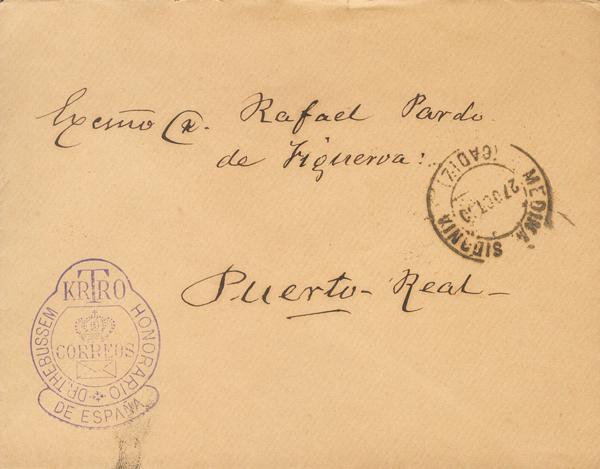 Excmo Sr. Rafael Pardo
de Figueroa:
Puerto-Real-
MEDINA SIDONIA
(CADIZ)
27 OCT
KRTRO
HONORARIO
DR.THEBUSSEM
CORREOS
DE ESPAÑA